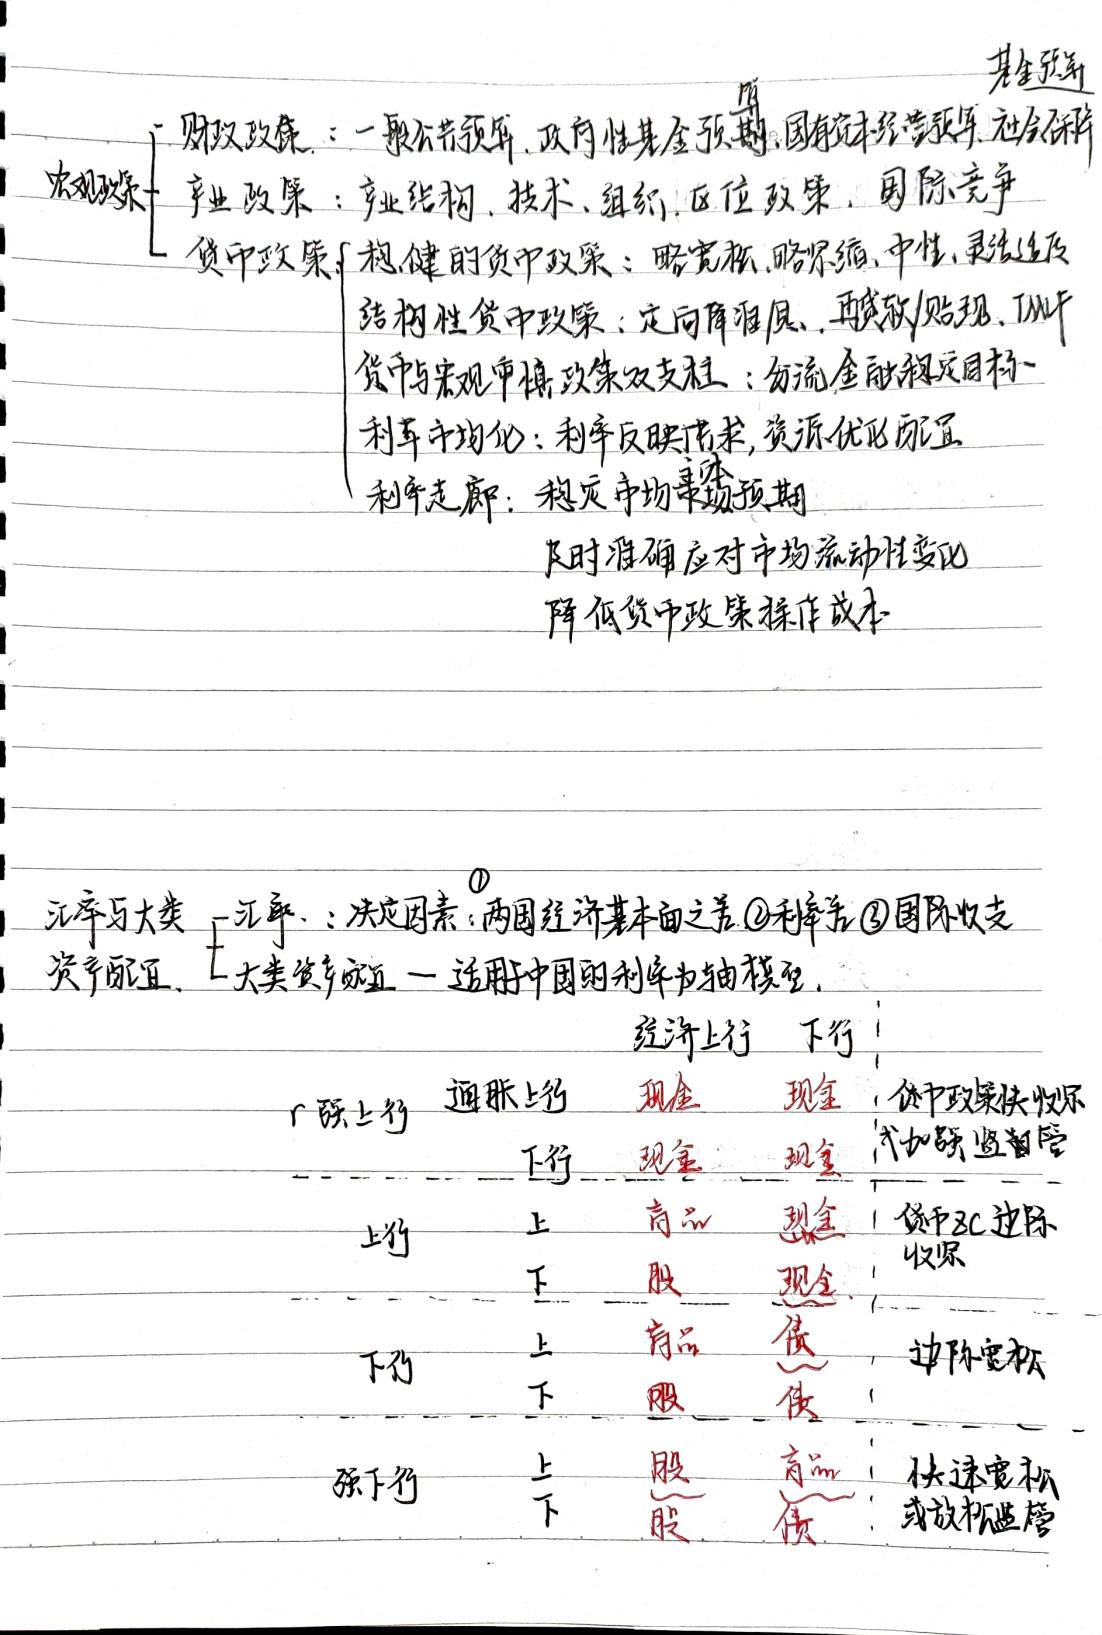 基金预算
财政政策：一般公共预算、政府性基金预算、国有资本经营预算、社会保障
宏观政策
产业政策：产业结构、技术、组织、区位政策、国际竞争
货币政策 稳健的货币政策：略宽松、略紧缩、中性、灵活适度
结构性货币政策：定向降准/息、再贷款/贴现、TMLF
货币与宏观审慎政策双支柱：金融稳定目标
利率市场化：利率反映需求，资源优化配置
利率走廊：稳定市场主体预期
及时准确应对市场流动性变化
降低货币政策操作成本
汇率与大类 汇率：决定因素：①两国经济基本面之差②利率差③国际收支
资产配置 大类资产配置—适用于中国的利率为轴模型.
经济上行 下行
r强上行 通胀上行 现金 现金 货币政策快收紧
下行 现金 现金 或加强监管
上行 上 商品 现金 货币ZC边际
下 股 现金 收紧
下行 上 商品 债 边际宽松
下 股 债
强下行 上 股 商品 快速宽松
下 股 债 或放松监管